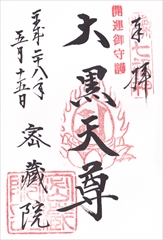 奉拝
開運御守護
大黒天尊
平成二十八年
五月十五日
密蔵院